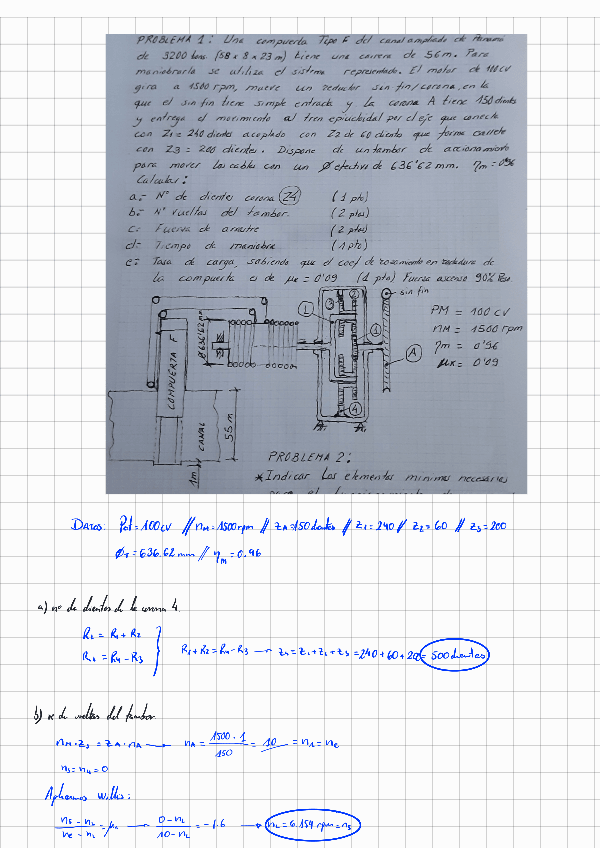 PROBLEMA 1: Una compuerta Tipo F del canal ampliado de Panamá
de 3200 tons (58 x 8 x 23 m) tiene una carrera de 56m. Para
maniobrarla se utiliza el sistema representado. El motor de 100 CV
gira a 1500 rpm, mueve un reductor sin fin/corona, en la
que el sin fin tiene simple entrada y la corona A tiene 150 dientes
y entrega el movimiento al tren epicicloidal por el eje que conecta
con Z1 = 240 dientes acoplado con Z2 de 60 dientes que forma carrete
con Z3 = 200 dientes. Dispone de un tambor de accionamiento
para mover los cables con un Ø efectivo de 636'62 mm. ηm = 0'96
Calcular:
a.- Nº de dientes corona Z4 (1 pto)
b.- Nº vueltas del tambor. (2 ptos)
c.- Fuerza de arrastre (2 ptos)
d.- Tiempo de maniobra (1 pto)
e.- Tasa de carga, sabiendo que el coef de rozamiento en rodadura de
la compuerta es de μk = 0'09 (1 pto) Fuerza ascenso 90% Peso
sin fin
PM = 100 CV
nM = 1500 rpm
ηm = 0'96
μk = 0'09
L
3
2
1
4
A
Ø 636'62 mm
COMPUERTA F
CANAL
55 m
1m
PROBLEMA 2:
* Indicar los elementos mínimos necesarios
DATOS: Pot = 100 CV // nM = 1500 rpm // ZA = 150 dientes // Z1 = 240 // Z2 = 60 // Z3 = 200
ØT = 636.62 mm // ηm = 0.96
a) nº de dientes de la corona 4.
RL = R1 + R2
RL = R4 - R3
R1 + R2 = R4 - R3 → Z4 = Z1 + Z2 + Z3 = 240 + 60 + 200 = 500 dientes
b) nº de vueltas del tambor.
nM · ZS = ZA · nA → nA = 1500 · 1 / 150 = 10 = n1 = nE
nS = n4 = 0
Aplicamos Willis:
nS - nL / nE - nL = μa → 0 - nL / 10 - nL = -1.6 → nL = 6.154 rpm = nS